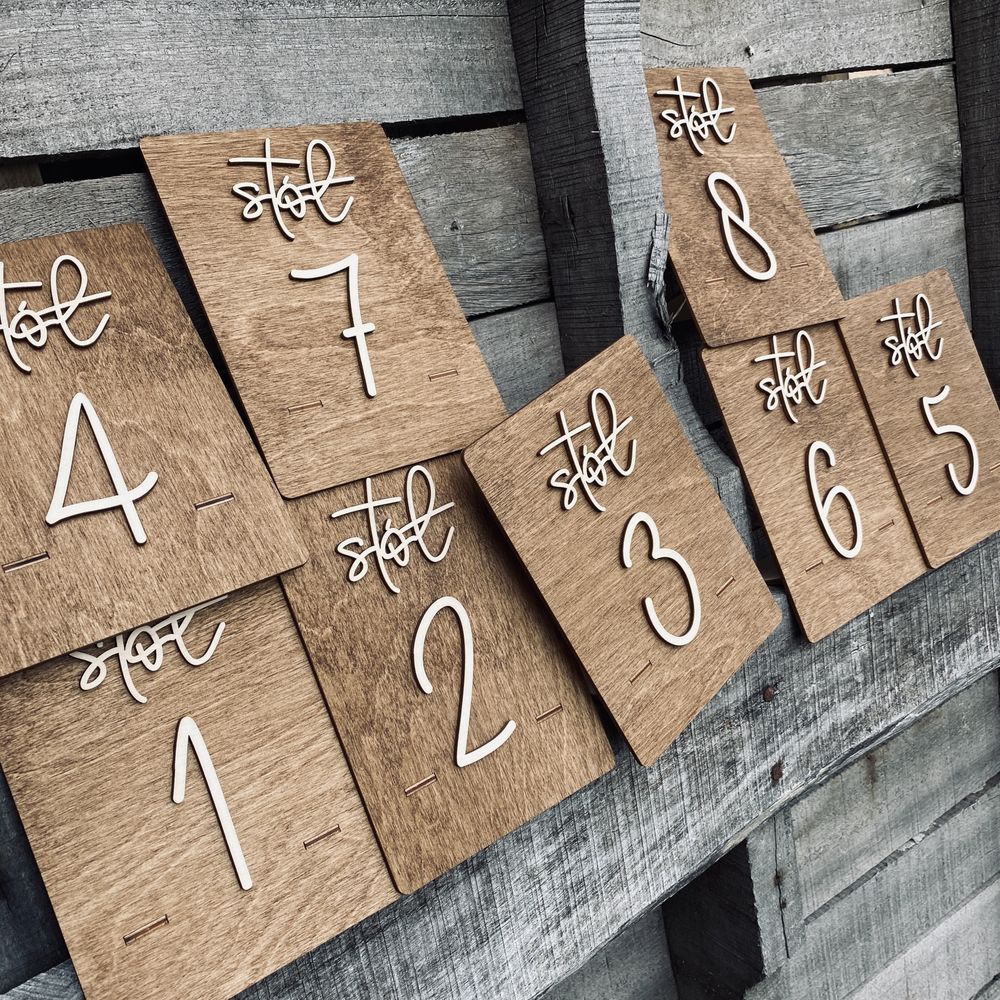 stół
7
stół
8
stół
4
stół
2
stół
3
stół
6
stół
5
stół
1